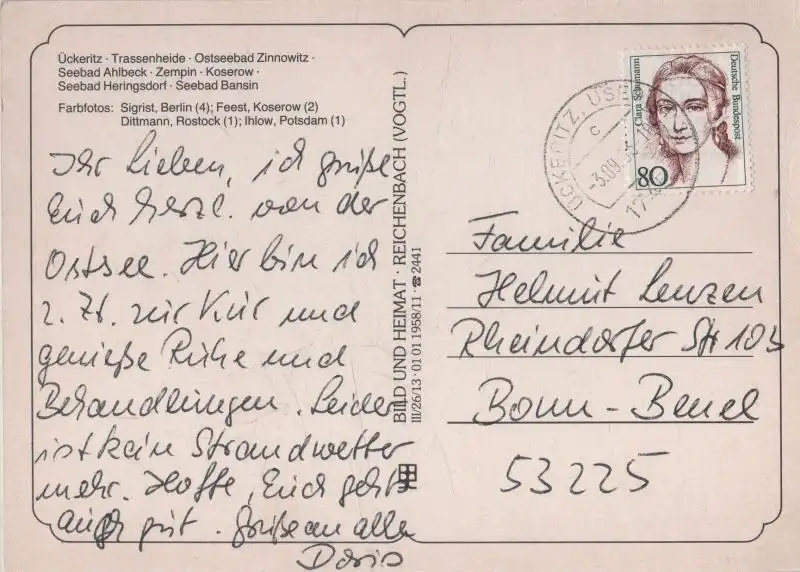 Ückeritz · Trassenheide · Ostseebad Zinnowitz ·
Seebad Ahlbeck · Zempin · Koserow ·
Seebad Heringsdorf · Seebad Bansin
Farbfotos: Sigrist, Berlin (4); Feest, Koserow (2)
Dittmann, Rostock (1); Ihlow, Potsdam (1)
Ihr Lieben, ich grüße
Euch herzl. von der
Ostsee. Hier bin ich
z. Zt. zur Kur und
genieße Ruhe und
Behandlungen. Leider
ist kein Strandwetter
mehr. Hoffe, Euch geht's
auch gut. Grüße an alle
Doris
BILD UND HEIMAT · REICHENBACH (VOGTL.)
III/26/13 · 01 01 1958/11 · ☎ 2441
Deutsche Bundespost
Clara Schumann
80
ÜCKERITZ, USE
c
-3.09.
17
Familie
Helmut Lenzen
Rheindorfer Str 103
Bonn-Beuel
53225